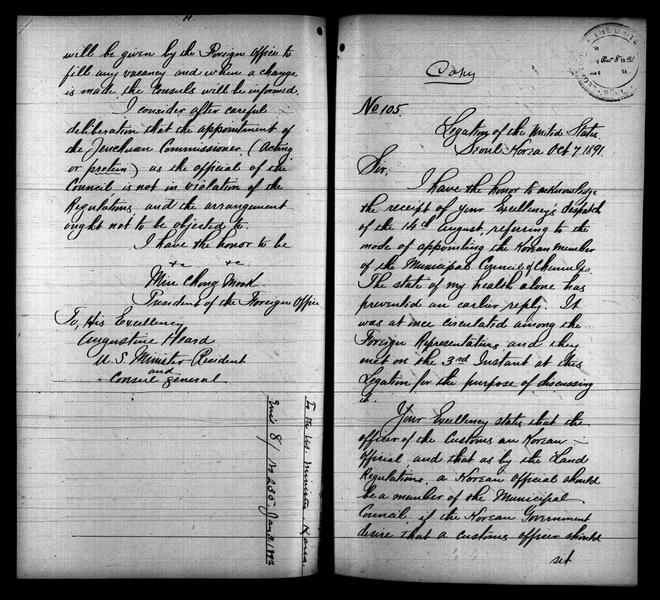 4.
will be given by the Foreign Office to
fill any vacancy and where a change
is made, the Consuls will be informed.
I consider after careful
deliberation that the appointment of
the Jenchuan Commissioner (Acting
or protem) as the official of the
Council is not in violation of the
Regulations, and the arrangement
ought not to be objected to.
I have the honor to be
&c &c
Min Chong Mook
President of the Foreign Office
To, His Excellency
Augustine Heard
U S Minister Resident
and
Consul General
To the U.S. Minister Korea
No 255 Jan
Copy
No 105.
Legation of the United States
Seoul Korea Oct 7 1891.
Sir,
I have the honor to acknowledge
the receipt of Your Excellency's dispatch
of the 14th August, referring to the
mode of appointing the Korean member
of the Municipal Council of Chemulpo.
The state of my health alone has
prevented an earlier reply. It
was at once circulated among the
Foreign Representatives and they
met on the 3rd Instant at this
Legation for the purpose of discussing
it.
Your Excellency states that the
officer of the Customs an Korean
official, and that as by the Land
Regulations, a Korean Official should
be a member of the Municipal
Council, if the Korean Government
desire that a customs officer should
sit